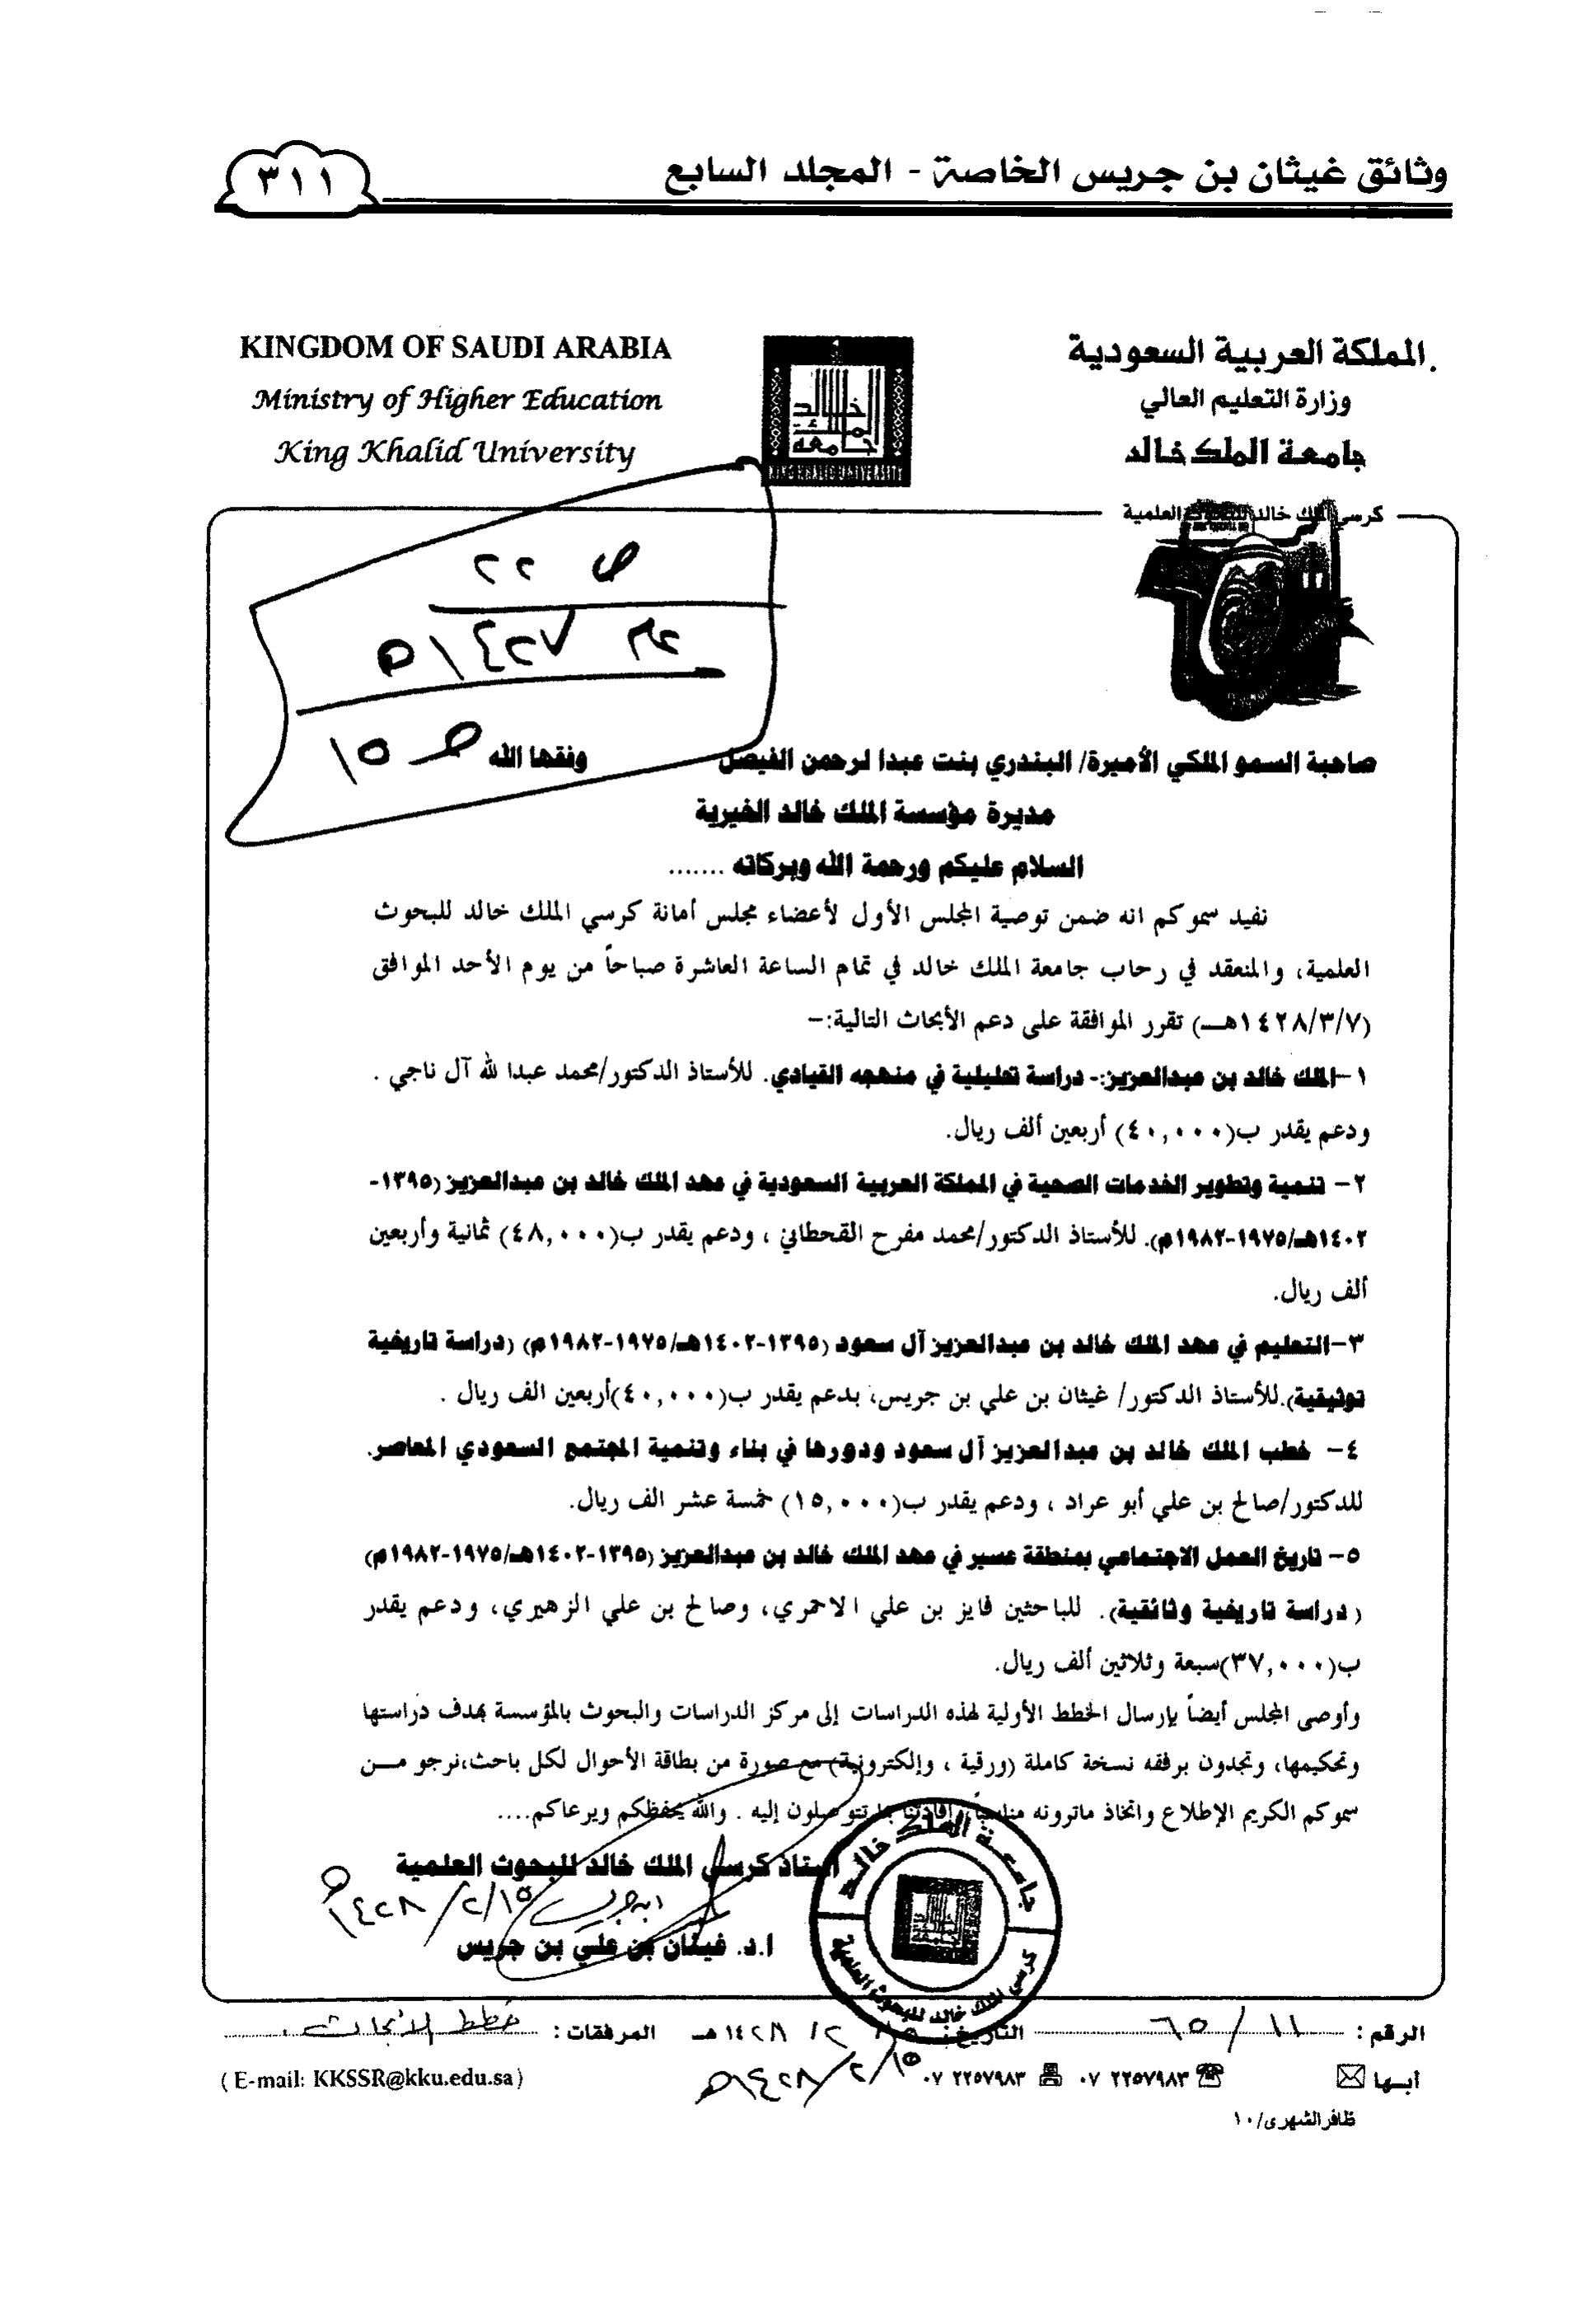 وثائق غيثان بن جريس الخاصة - المجلد السابع
٣١١
المملكة العربية السعودية
وزارة التعليم العالي
جامعة الملك خالد
KINGDOM OF SAUDI ARABIA
Ministry of Higher Education
King Khalid University
KING KHALID UNIVERSITY
كرسي الملك خالد للبحوث العلمية
ص ٢٢
عام ١٤٢٧هـ
ص ١٥
صاحبة السمو الملكي الأميرة/ البندري بنت عبدا لرحمن الفيصل وفقها الله
مديرة مؤسسة الملك خالد الخيرية
السلام عليكم ورحمة الله وبركاته .......
نفيد سموكم انه ضمن توصية المجلس الأول لأعضاء مجلس أمانة كرسي الملك خالد للبحوث
العلمية، والمنعقد في رحاب جامعة الملك خالد في تمام الساعة العاشرة صباحاً من يوم الأحد الموافق
(١٤٢٨/٣/٧هـ) تقرر الموافقة على دعم الأبحاث التالية:–
١–الملك خالد بن عبدالعزيز:- دراسة تحليلية في منهجه القيادي. للأستاذ الدكتور/محمد عبدا لله آل ناجي .
ودعم يقدر ب(٤٠,٠٠٠) أربعين ألف ريال.
٢– تنمية وتطوير الخدمات الصحية في المملكة العربية السعودية في عهد الملك خالد بن عبدالعزيز (١٣٩٥-
١٤٠٢هـ/١٩٧٥-١٩٨٢م). للأستاذ الدكتور/محمد مفرح القحطاني ، ودعم يقدر ب(٤٨,٠٠٠) ثمانية وأربعين
ألف ريال.
٣–التعليم في عهد الملك خالد بن عبدالعزيز آل سعود (١٣٩٥-١٤٠٢هـ/١٩٧٥-١٩٨٢م) (دراسة تاريخية
توثيقية).للأستاذ الدكتور/ غيثان بن علي بن جريس، بدعم يقدر ب(٤٠,٠٠٠)أربعين الف ريال .
٤– خطب الملك خالد بن عبدالعزيز آل سعود ودورها في بناء وتنمية المجتمع السعودي المعاصر.
للدكتور/صالح بن علي أبو عراد ، ودعم يقدر ب(١٥,٠٠٠) خمسة عشر الف ريال.
٥– تاريخ العمل الاجتماعي بمنطقة عسير في عهد الملك خالد بن عبدالعزيز (١٣٩٥-١٤٠٢هـ/١٩٧٥-١٩٨٢م)
(دراسة تاريخية وثائقية). للباحثين فايز بن علي الاحمري، وصالح بن علي الزهيري، ودعم يقدر
ب(٣٧,٠٠٠)سبعة وثلاثين ألف ريال.
وأوصى المجلس أيضاً بإرسال الخطط الأولية لهذه الدراسات إلى مركز الدراسات والبحوث بالمؤسسة بهدف دراستها
وتحكيمها، وتجدون برفقه نسخة كاملة (ورقية ، وإلكترونية) مع صورة من بطاقة الأحوال لكل باحث،نرجو من
سموكم الكريم الإطلاع واتخاذ ماترونه مناسباً وإفادتنا بما تتوصلون إليه . والله يحفظكم ويرعاكم....
أستاذ كرسي الملك خالد للبحوث العلمية
ابن جريس ١٤٢٨/٢/١٥هـ
أ.د. غيثان بن علي بن جريس
جامعة الملك خالد
كرسي الملك خالد للبحوث العلمية
الرقم : ١١/٦٥ التاريخ: ١٥/٢/١٤٢٨هـ المرفقات : خطط الأبحاث.
١٤٢٨/٢/١٥هـ
أبها ٠٧ ٢٢٥٧٩٨٣ ٠٧ ٢٢٥٧٩٨٣ (E-mail: KKSSR@kku.edu.sa)
ظافر الشهري/١٠